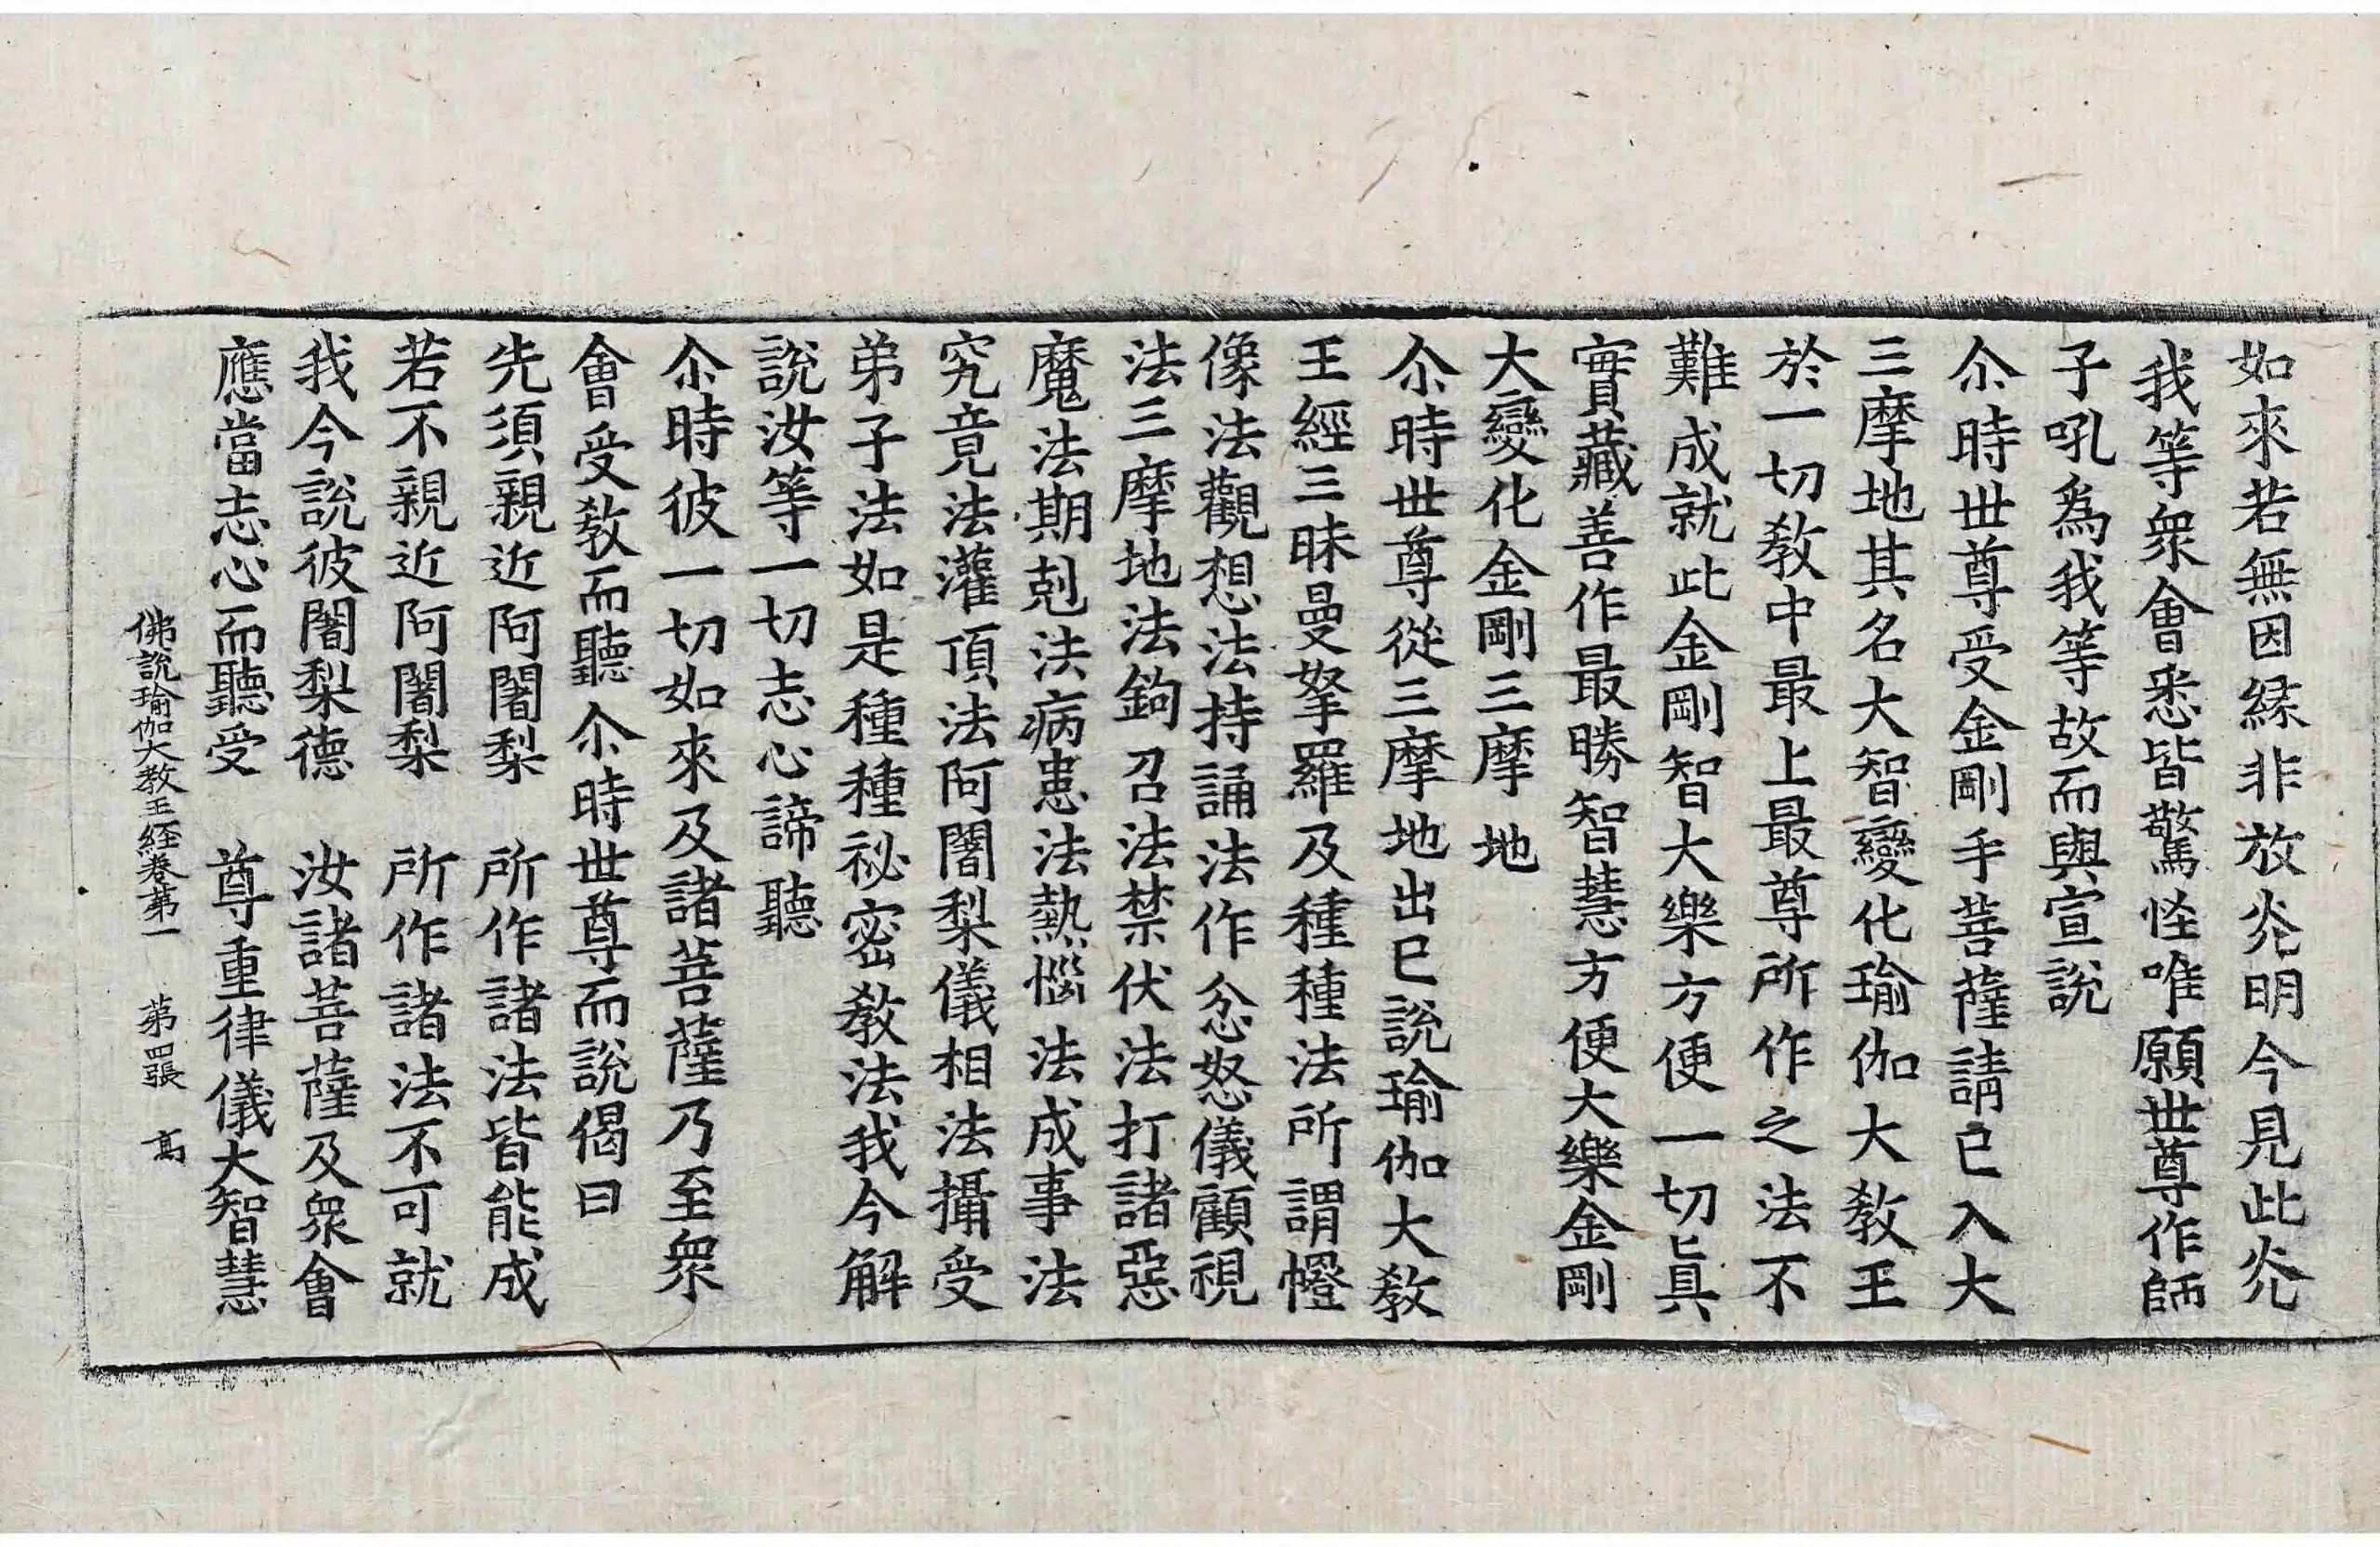 如來若無因緣非放光明今見此光
我等衆會悉皆驚怪唯願世尊作師
子吼爲我等故而與宣說
尒時世尊受金剛手菩薩請已入大
三摩地其名大智變化瑜伽大教王
於一切教中最上最尊所作之法不
難成就此金剛智大樂方便一切眞
實藏善作最勝智慧方便大樂金剛
大變化金剛三摩地
尒時世尊從三摩地出已說瑜伽大教
王經三昧曼拏羅及種種法所謂㡧
像法觀想法持誦法作忿怒儀顧視
法三摩地法鉤召法禁伏法打諸惡
魔法期剋法病患法熱惱法成事法
究竟法灌頂法阿闍梨儀相法攝受
弟子法如是種種祕密教法我今解
說汝等一切志心諦聽
尒時彼一切如來及諸菩薩乃至衆
會受教而聽尒時世尊而說偈曰
先須親近阿闍梨　所作諸法皆能成
若不親近阿闍梨　所作諸法不可就
我今說彼闍梨德　汝諸菩薩及衆會
應當志心而聽受　尊重律儀大智慧
佛說瑜伽大教王經卷第一　第四張　高